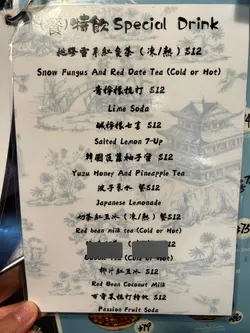 特飲 Special Drink
桃膠雪耳紅棗茶 (凍/熱) $12
Snow Fungus And Red Date Tea (Cold or Hot)
青檸梳打 $12
Lime Soda
鹹檸七 $12
Salted Lemon 7-Up
韓國菠蘿柚子蜜 $12
Yuzu Honey And Pineapple Tea
波子汽水 $12
Japanese Lemonade
奶茶紅豆冰 (凍/熱) $12
Red bean milk tea (Cold or Hot)
(Cold or Hot)
椰汁紅豆冰 $12
Red Bean Coconut Milk
百香果梳打特飲 $12
Passion Fruit Soda
$79